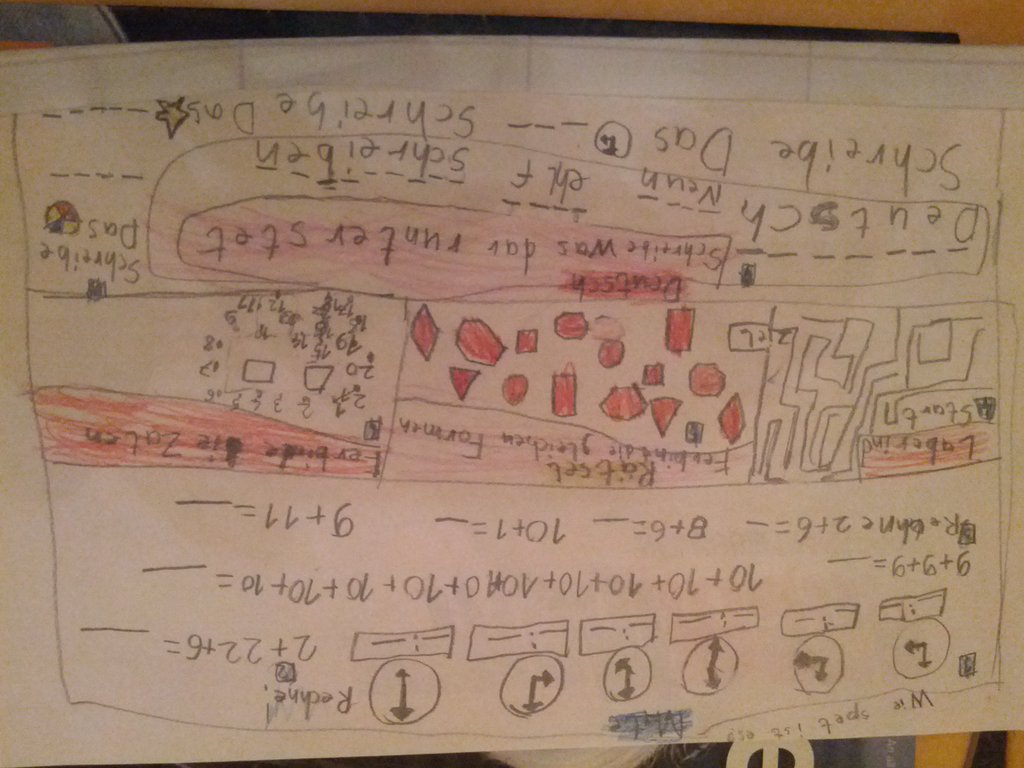 Wie spet ist es?
Mate
Rechne!
2+22+6=
9+9+9=
10+10+10+10+10+10+10+10+10=
Rechne 2+6=
8+6=
10+1=
9+11=
Laberind
Startn
Ziel
Rätsel
Ferbinde die gleichen Formen
Ferbinde die Zalen
Deutsch
Schreibe was dar runter stet
Deutsch
Neun
elf
Schreiben
Schreibe Das
Schreibe Das
Schreibe Das